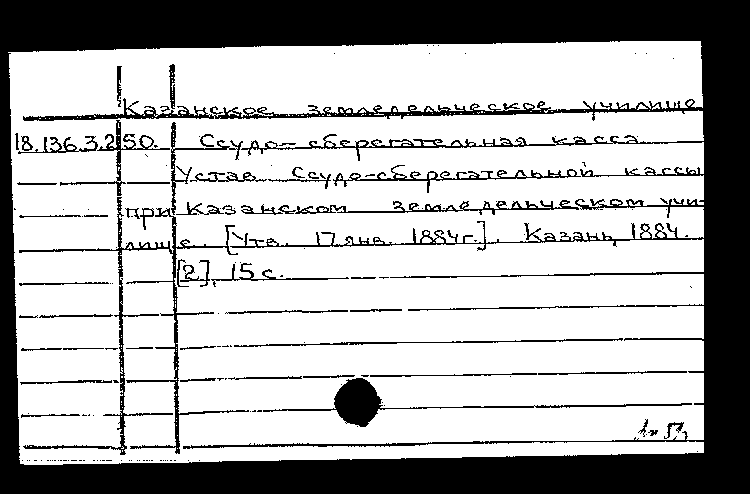 Казанское земледельческое училище
18.136.3.250. Ссудо-сберегательная касса
Устав Ссудо-сберегательной кассы
при Казанском земледельческом учи-
лище. [Утв. 17 янв. 1884г.]. Казань, 1884.
[2], 15 с.